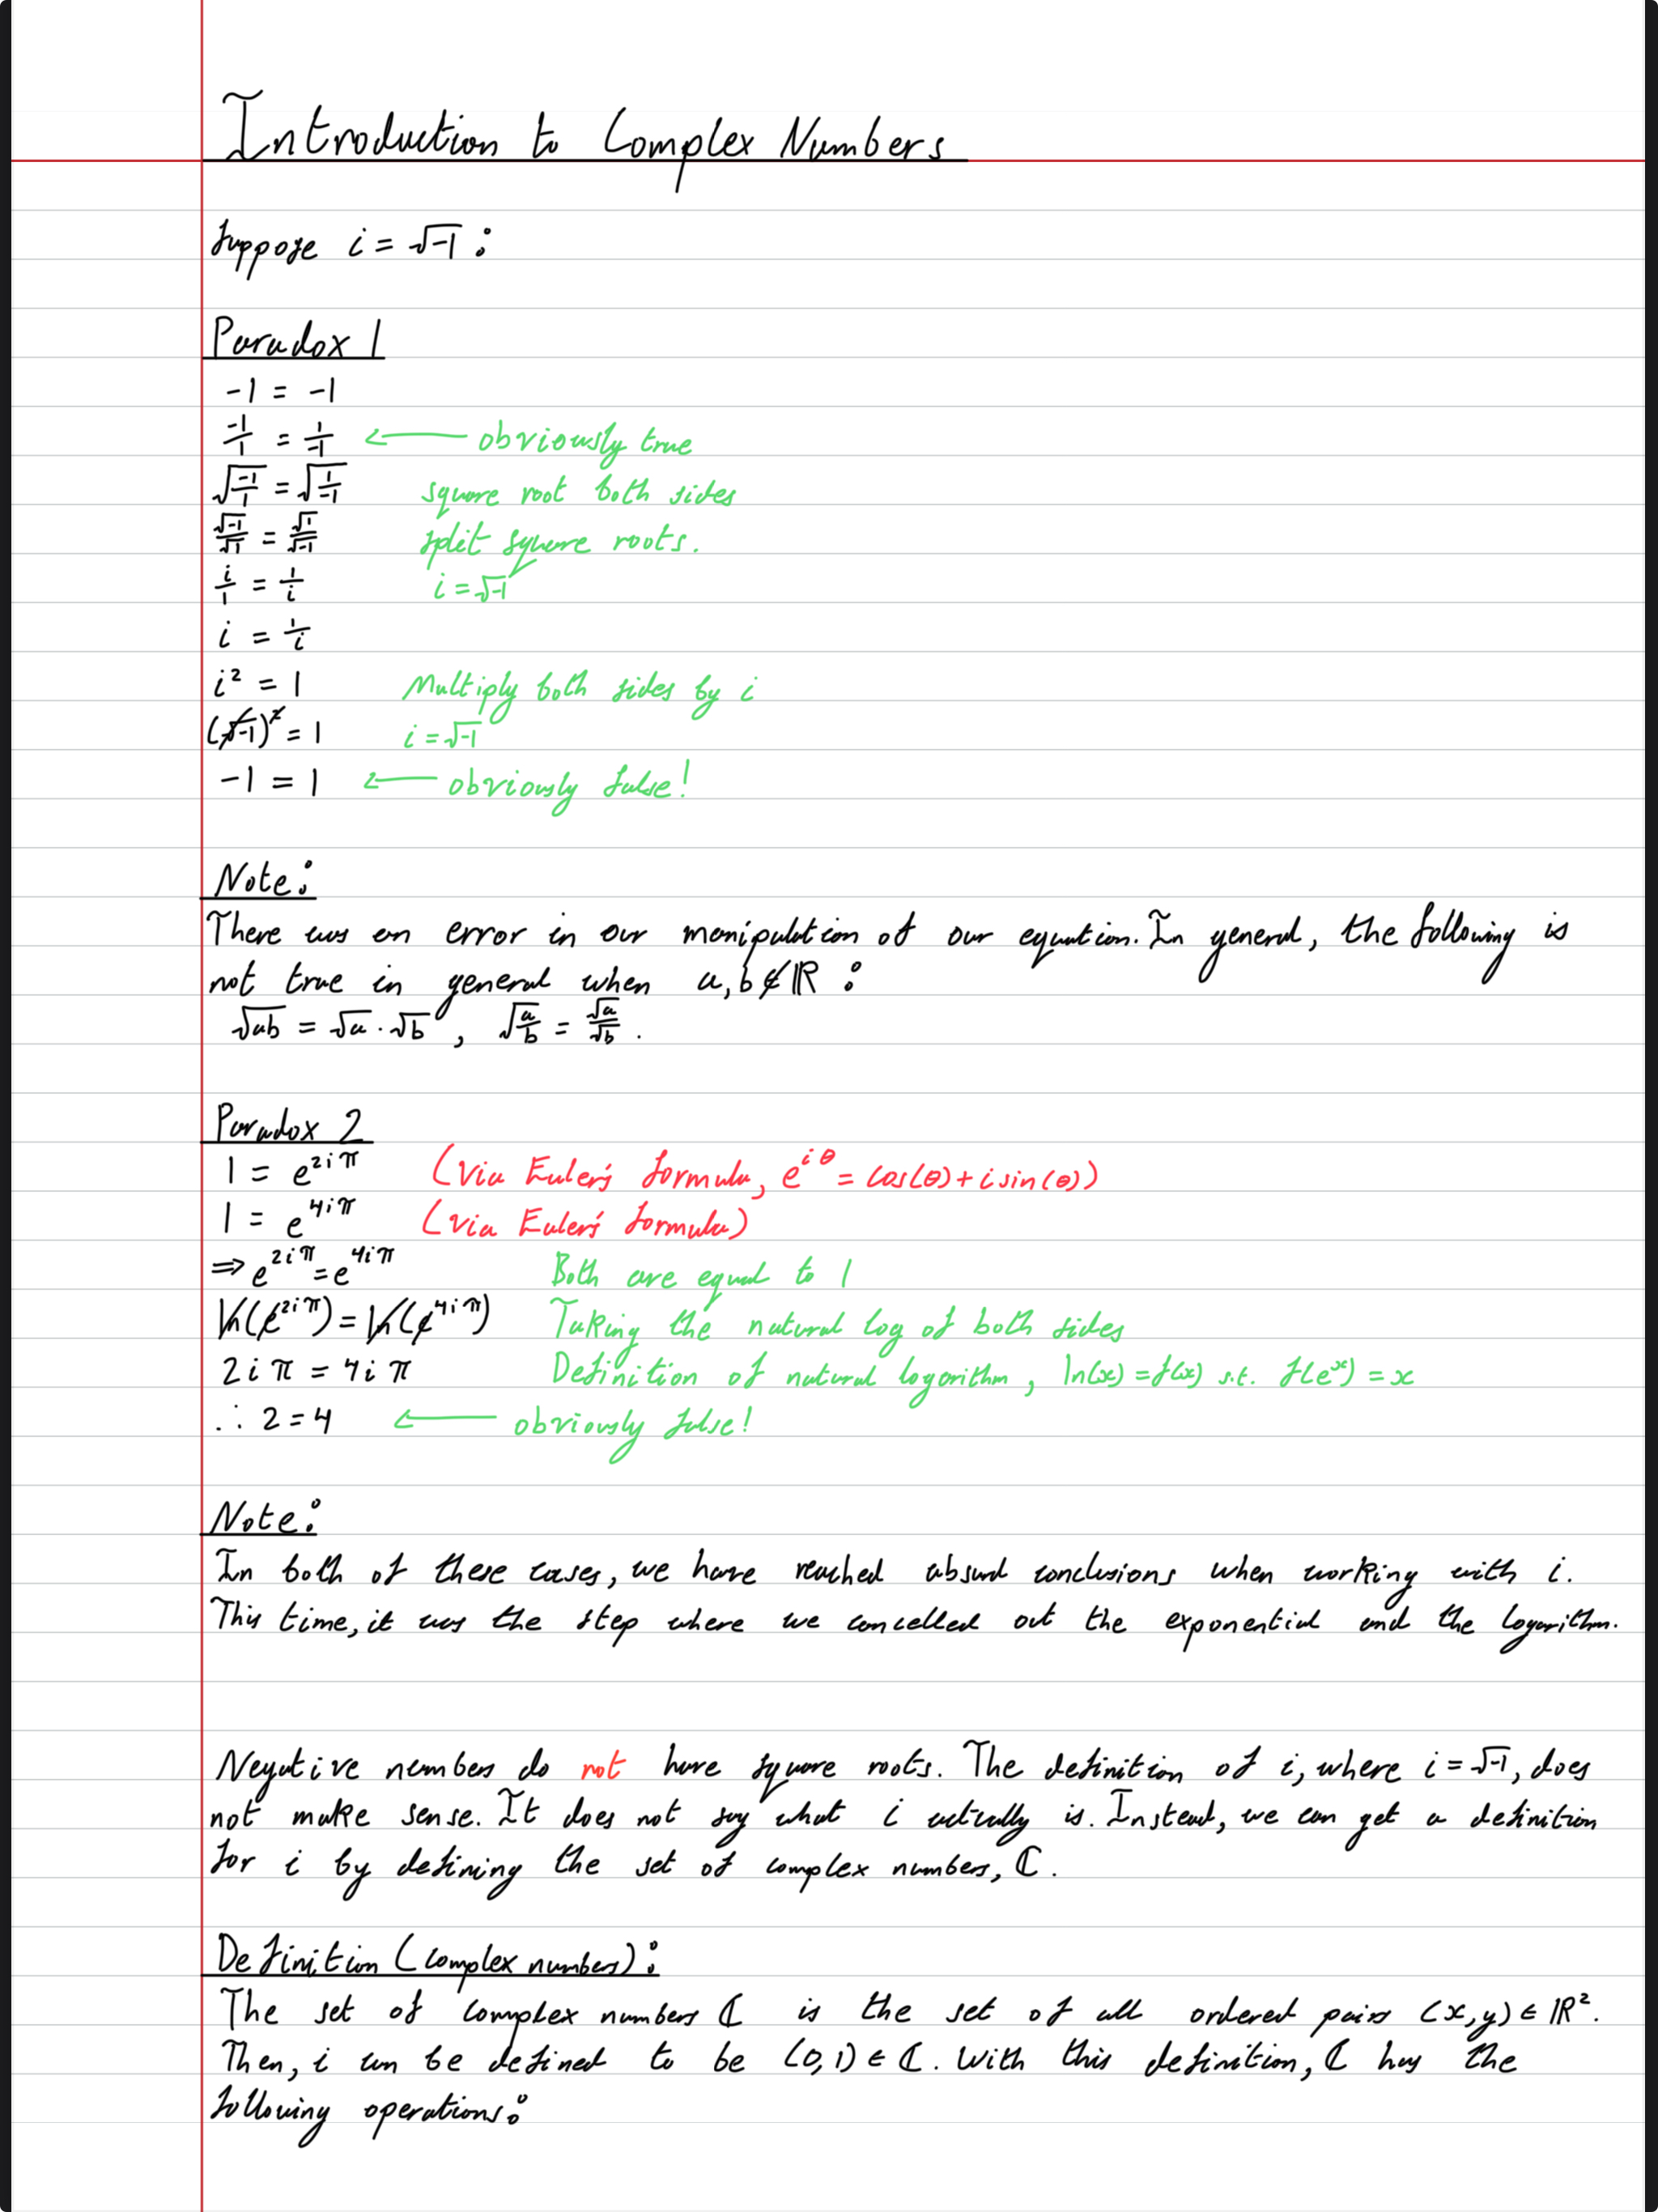 Introduction to Complex Numbers
Suppose i = √-1 :
Paradox 1
-1 = -1
-1/1 = 1/-1 ← obviously true
√(-1/1) = √(1/-1) square root both sides
√-1/√1 = √1/√-1 split square roots.
i/1 = 1/i i = √-1
i = 1/i
i² = 1 Multiply both sides by i
(√-1)² = 1 i = √-1
-1 = 1 ← obviously false!
Note:
There was an error in our manipulation of our equation. In general, the following is
not true in general when a, b ∉ ℝ :
√ab = √a · √b , √(a/b) = √a/√b .
Paradox 2
1 = e^{2iπ} (via Euler's formula, e^{iθ} = cos(θ) + i sin(θ))
1 = e^{4iπ} (via Euler's formula)
⇒ e^{2iπ} = e^{4iπ} Both are equal to 1
ln(e^{2iπ}) = ln(e^{4iπ}) Taking the natural log of both sides
2iπ = 4iπ Definition of natural logarithm, ln(x) = f(x) s.t. f(e^x) = x
∴ 2 = 4 ← obviously false!
Note:
In both of these cases, we have reached absurd conclusions when working with i.
This time, it was the step where we cancelled out the exponential and the logarithm.
Negative numbers do not have square roots. The definition of i, where i = √-1, does
not make sense. It does not say what i actually is. Instead, we can get a definition
for i by defining the set of complex numbers, ℂ.
Definition (complex numbers):
The set of complex numbers ℂ is the set of all ordered pairs (x, y) ∈ ℝ².
Then, i can be defined to be (0, 1) ∈ ℂ. With this definition, ℂ has the
following operations: